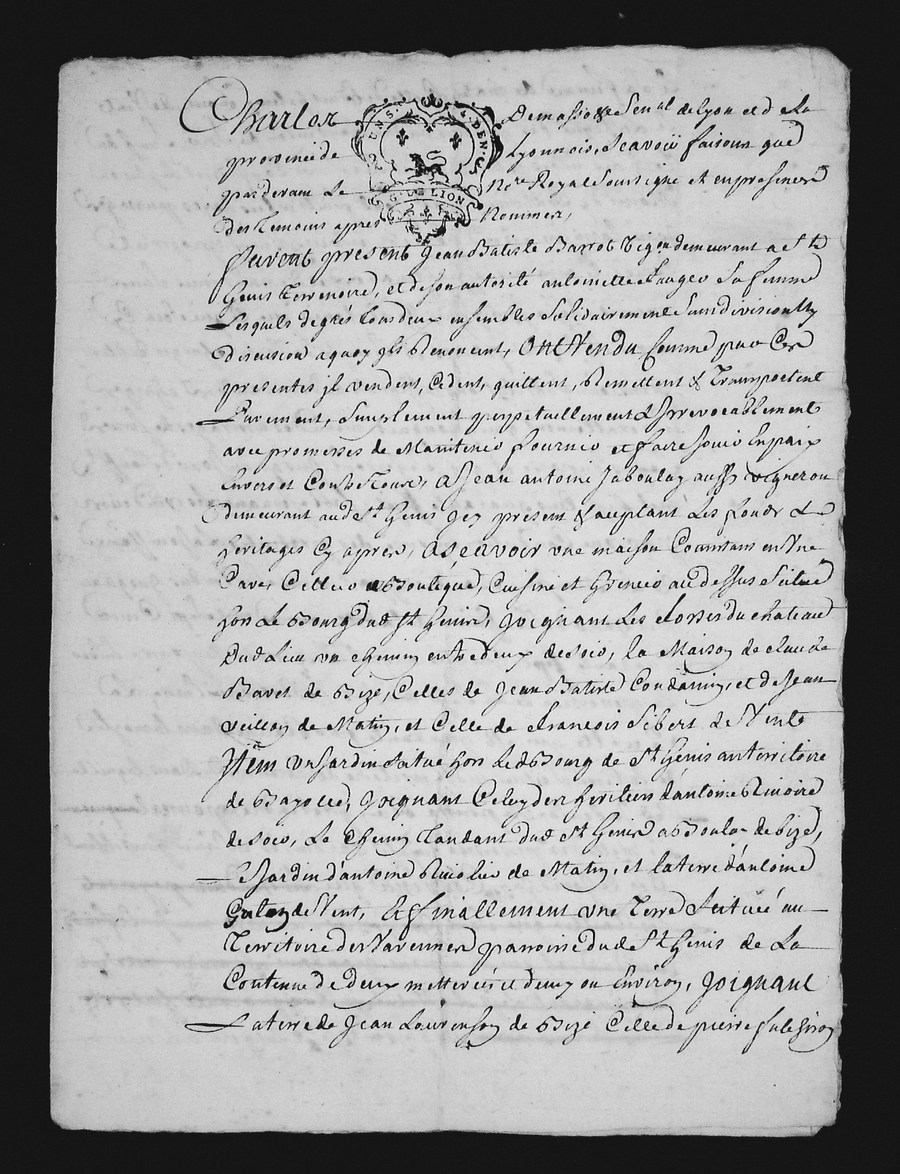 Charles Demasso & Senal de Lyon et de la
province de Lyonnois, Scavoir faisons que
pardevant Le Nre Royal Soussigne et en presence
des temoins apres Nommes,
UN S. 4. DEN.
G. DE LION
furent present Jean Batiste Barrot Vigon demeurant a St
Genis terrenoire, et de son autorité antoinette Sauger Sa femme
Lesquels de gres tous deux ensembles Solidairement Sans division Ny
discusion a quoy ils Renoncent, ont Vendu comme par Ces
presentes il vendent, Cedent, quittent, Remettent & Transportent
Purement, Simplement perpetuellement & Irrevocablement
avec promesses de Maintenir fournir et faire Jouir En paix
Envers et Contre Tous, a Jean antoine Jaboulay aussy vigneron
demeurant aud St Genis Icy present & acceptant Les fonds &
heritages Cy apres, a Scavoir une maison Consistans en Une
Cave, Cellier & Boutique, Cuisine et Grenier au dessus Scitué
hors Le Bourg dud St Genis, Joignant Les fosses du chateau
dud Lieu un chemin entre deux de soir, la Maison de claude
Bavet de Bize, Celles de Jean Batiste Condamin, et de Jean
veillon de Matin, et Celle de francois Sibert de Vent
Item Un Jardin Situé hors Led Bourg de St Genis au territoire
de Bayolle, Joignant Celuy des heritiers d'antoine Rivoire
de soir, Le Chemin Tandant dud St Genis a Boulac de bize,
Le Jardin d'antoine Rivolier de Matin, et la terre d'antoine
de Vent, Et finallement une Terre Scituée au
Territoire des Varennes parroisse dud St Genis de La
Contenue de deux metterées et demy ou Environ, Joignant
La terre de Jean Laurenson de Bize Celle de pierre fulchiron